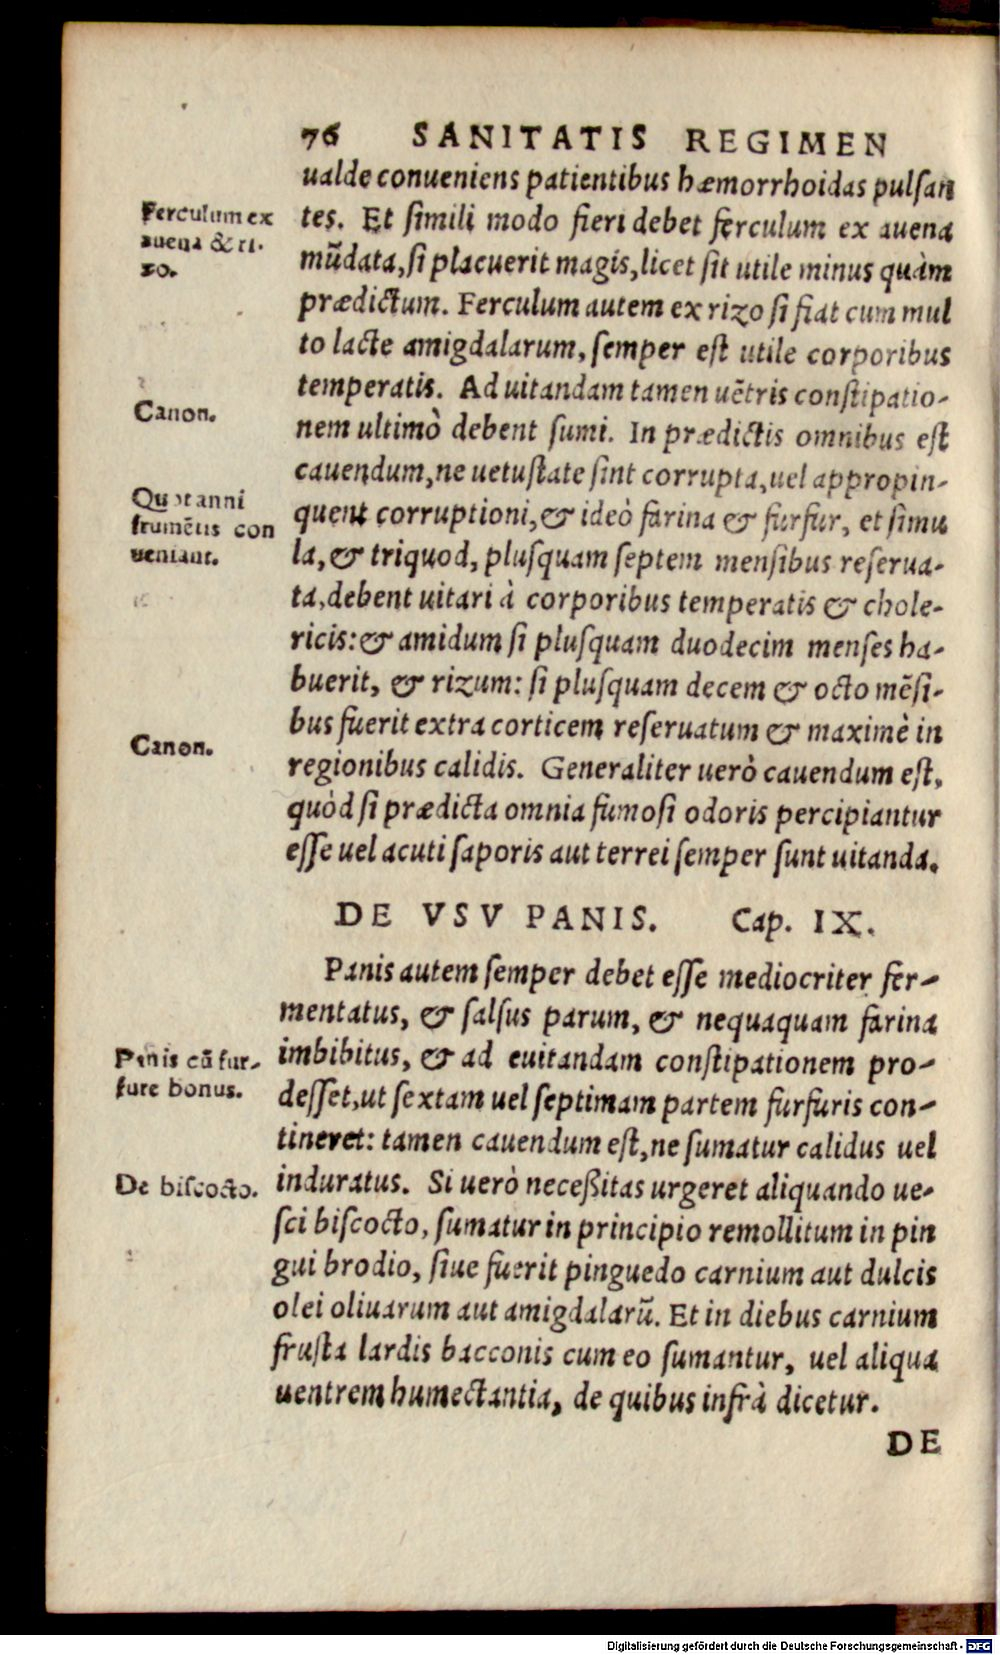 76 SANITATIS REGIMEN
ualde conueniens patientibus hæmorrhoidas pulſan
tes. Et ſimili modo fieri debet ferculum ex auena
mũdata, ſi placuerit magis, licet ſit utile minus quàm
prædictum. Ferculum autem ex rizo ſi fiat cum mul
to lacte amigdalarum, ſemper eſt utile corporibus
temperatis. Ad uitandam tamen uẽtris conſtipatio-
nem ultimò debent ſumi. In prædictis omnibus eſt
cauendum, ne uetuſtate ſint corrupta, uel appropin-
quent corruptioni, & ideò farina & furfur, et ſimu
la, & triquod, pluſquam ſeptem menſibus reſerua-
ta, debent uitari à corporibus temperatis & chole-
ricis: & amidum ſi pluſquam duodecim menſes ha-
buerit, & rizum: ſi pluſquam decem & octo mẽſi-
bus fuerit extra corticem reſeruatum & maximè in
regionibus calidis. Generaliter uerò cauendum eſt,
quòd ſi prædicta omnia fumoſi odoris percipiantur
eſſe uel acuti ſaporis aut terrei ſemper ſunt uitanda.
Ferculum ex
auena & ri-
zo.
Canon.
Quot anni
frumẽtis con
ueniant.
Canon.
DE VSV PANIS. Cap. IX.
Panis autem ſemper debet eſſe mediocriter fer-
mentatus, & ſalſus parum, & nequaquam farina
imbibitus, & ad euitandam conſtipationem pro-
deſſet, ut ſextam uel ſeptimam partem furfuris con-
tineret: tamen cauendum eſt, ne ſumatur calidus uel
induratus. Si uerò neceßitas urgeret aliquando ue-
ſci biſcocto, ſumatur in principio remollitum in pin
gui brodio, ſiue fuerit pinguedo carnium aut dulcis
olei oliuarum aut amigdalarũ. Et in diebus carnium
fruſta lardis bacconis cum eo ſumantur, uel aliqua
uentrem humectantia, de quibus infrà dicetur.
Panis cũ fur-
fure bonus.
De biſcocto.
DE
Digitalisierung gefördert durch die Deutsche Forschungsgemeinschaft - DFG